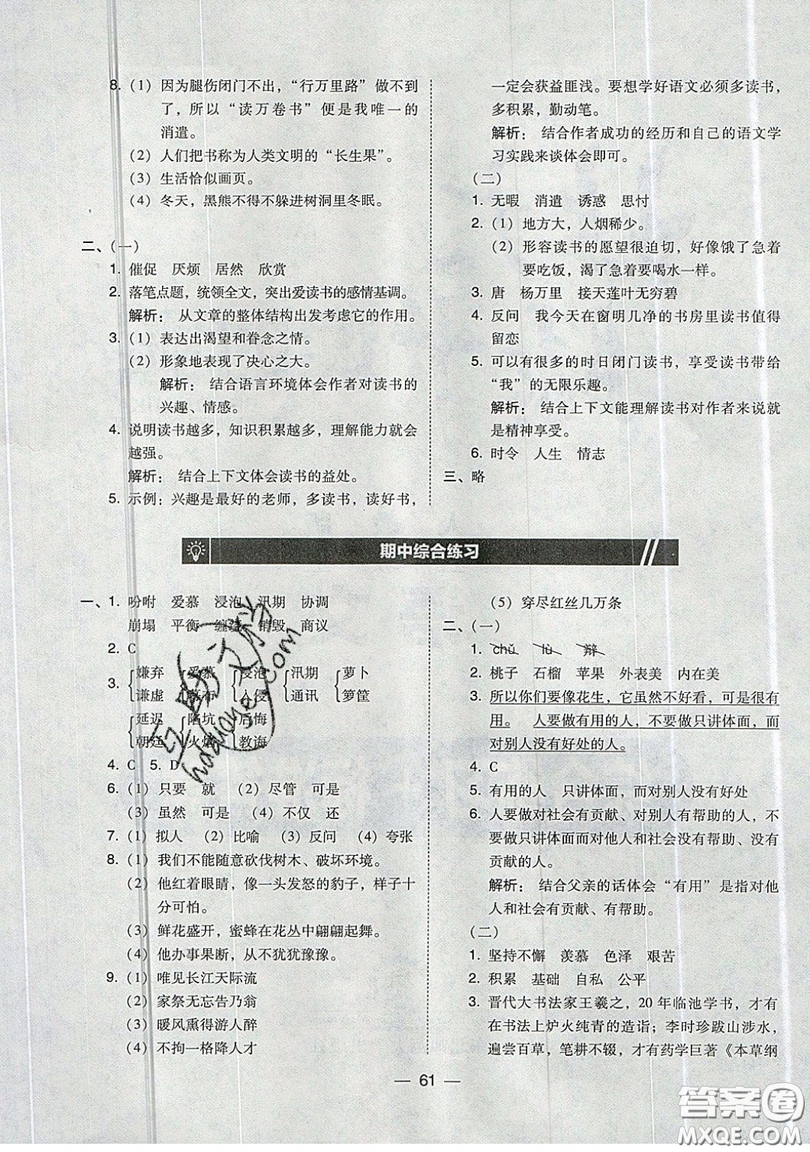 8. (1) 因为腿伤闭门不出，“行万里路”做不到
了，所以“读万卷书”便是我唯一的
消遣。
(2) 人们把书称为人类文明的“长生果”。
(3) 生活恰似画页。
(4) 冬天，黑熊不得不躲进树洞里冬眠。
二、(一)
1. 催促 厌烦 居然 欣赏
2. 落笔点题，统领全文，突出爱读书的感情基调。
解析： 从文章的整体结构出发考虑它的作用。
3. (1) 表达出渴望和眷念之情。
(2) 形象地表现了决心之大。
解析： 结合语言环境体会作者对读书的
兴趣、情感。
4. 说明读书越多，知识积累越多，理解能力就会
越强。
解析： 结合上下文体会读书的益处。
5. 示例：兴趣是最好的老师，多读书，读好书，
一定会获益匪浅。要想学好语文必须多读书，
多积累，勤动笔。
解析： 结合作者成功的经历和自己的语文学
习实践来谈体会即可。
(二)
1. 无暇 消遣 诱惑 思忖
2. (1) 地方大，人烟稀少。
(2) 形容读书的愿望很迫切，好像饿了急着
要吃饭，渴了急着要喝水一样。
3. 唐 杨万里 接天莲叶无穷碧
4. 反问 我今天在窗明几净的书房里读书值得
留恋
5. 可以有很多的时日闭门读书，享受读书带给
“我”的无限乐趣。
解析： 结合上下文能理解读书对作者来说就
是精神享受。
6. 时令 人生 情志
三、略
期中综合练习
一、1. 吩咐 爱慕 浸泡 汛期 协调
崩塌 平衡 缠绕 销毁 商议
2. C
3. 嫌弃 爱慕 浸泡 汛期 萝卜
谦虚 入侵 通讯 箩筐
延迟 陷坑 后悔
朝廷 火焰 教诲
4. C 5. D
6. (1) 只要 就 (2) 尽管 可是
(3) 虽然 可是 (4) 不仅 还
7. (1) 拟人 (2) 比喻 (3) 反问 (4) 夸张
8. (1) 我们不能随意砍伐树木、破坏环境。
(2) 他红着眼睛，像一头发怒的豹子，样子十
分可怕。
(3) 鲜花盛开，蜜蜂在花丛中翩翩起舞。
(4) 他办事果断，从不犹犹豫豫。
9. (1) 唯见长江天际流
(2) 家祭无忘告乃翁
(3) 暖风熏得游人醉
(4) 不拘一格降人才
(5) 穿尽红丝几万条
二、(一)
1. chǔ lù 辩
2. 桃子 石榴 苹果 外表美 内在美
3. 所以你们要像花生，它虽然不好看，可是很有
用。 人要做有用的人，不要做只讲体面，而
对别人没有好处的人。
4. C
5. 有用的人 只讲体面，而对别人没有好处
6. 人要做对社会有贡献、对别人有帮助的人，
不要做只讲体面而对他人和社会没有帮助、没有
贡献的人。
解析： 结合父亲的话体会“有用”是指对他
人和社会有贡献、有帮助。
(二)
1. 坚持不懈 羡慕 色泽 艰苦
2. 积累 基础 自私 公平
3. 晋代大书法家王羲之，20 年临池学书，才有
在书法上炉火纯青的造诣；李时珍跋山涉水，
遍尝百草，笔耕不辍，才有药学巨著《本草纲
61
答案圈
MXQE.COM